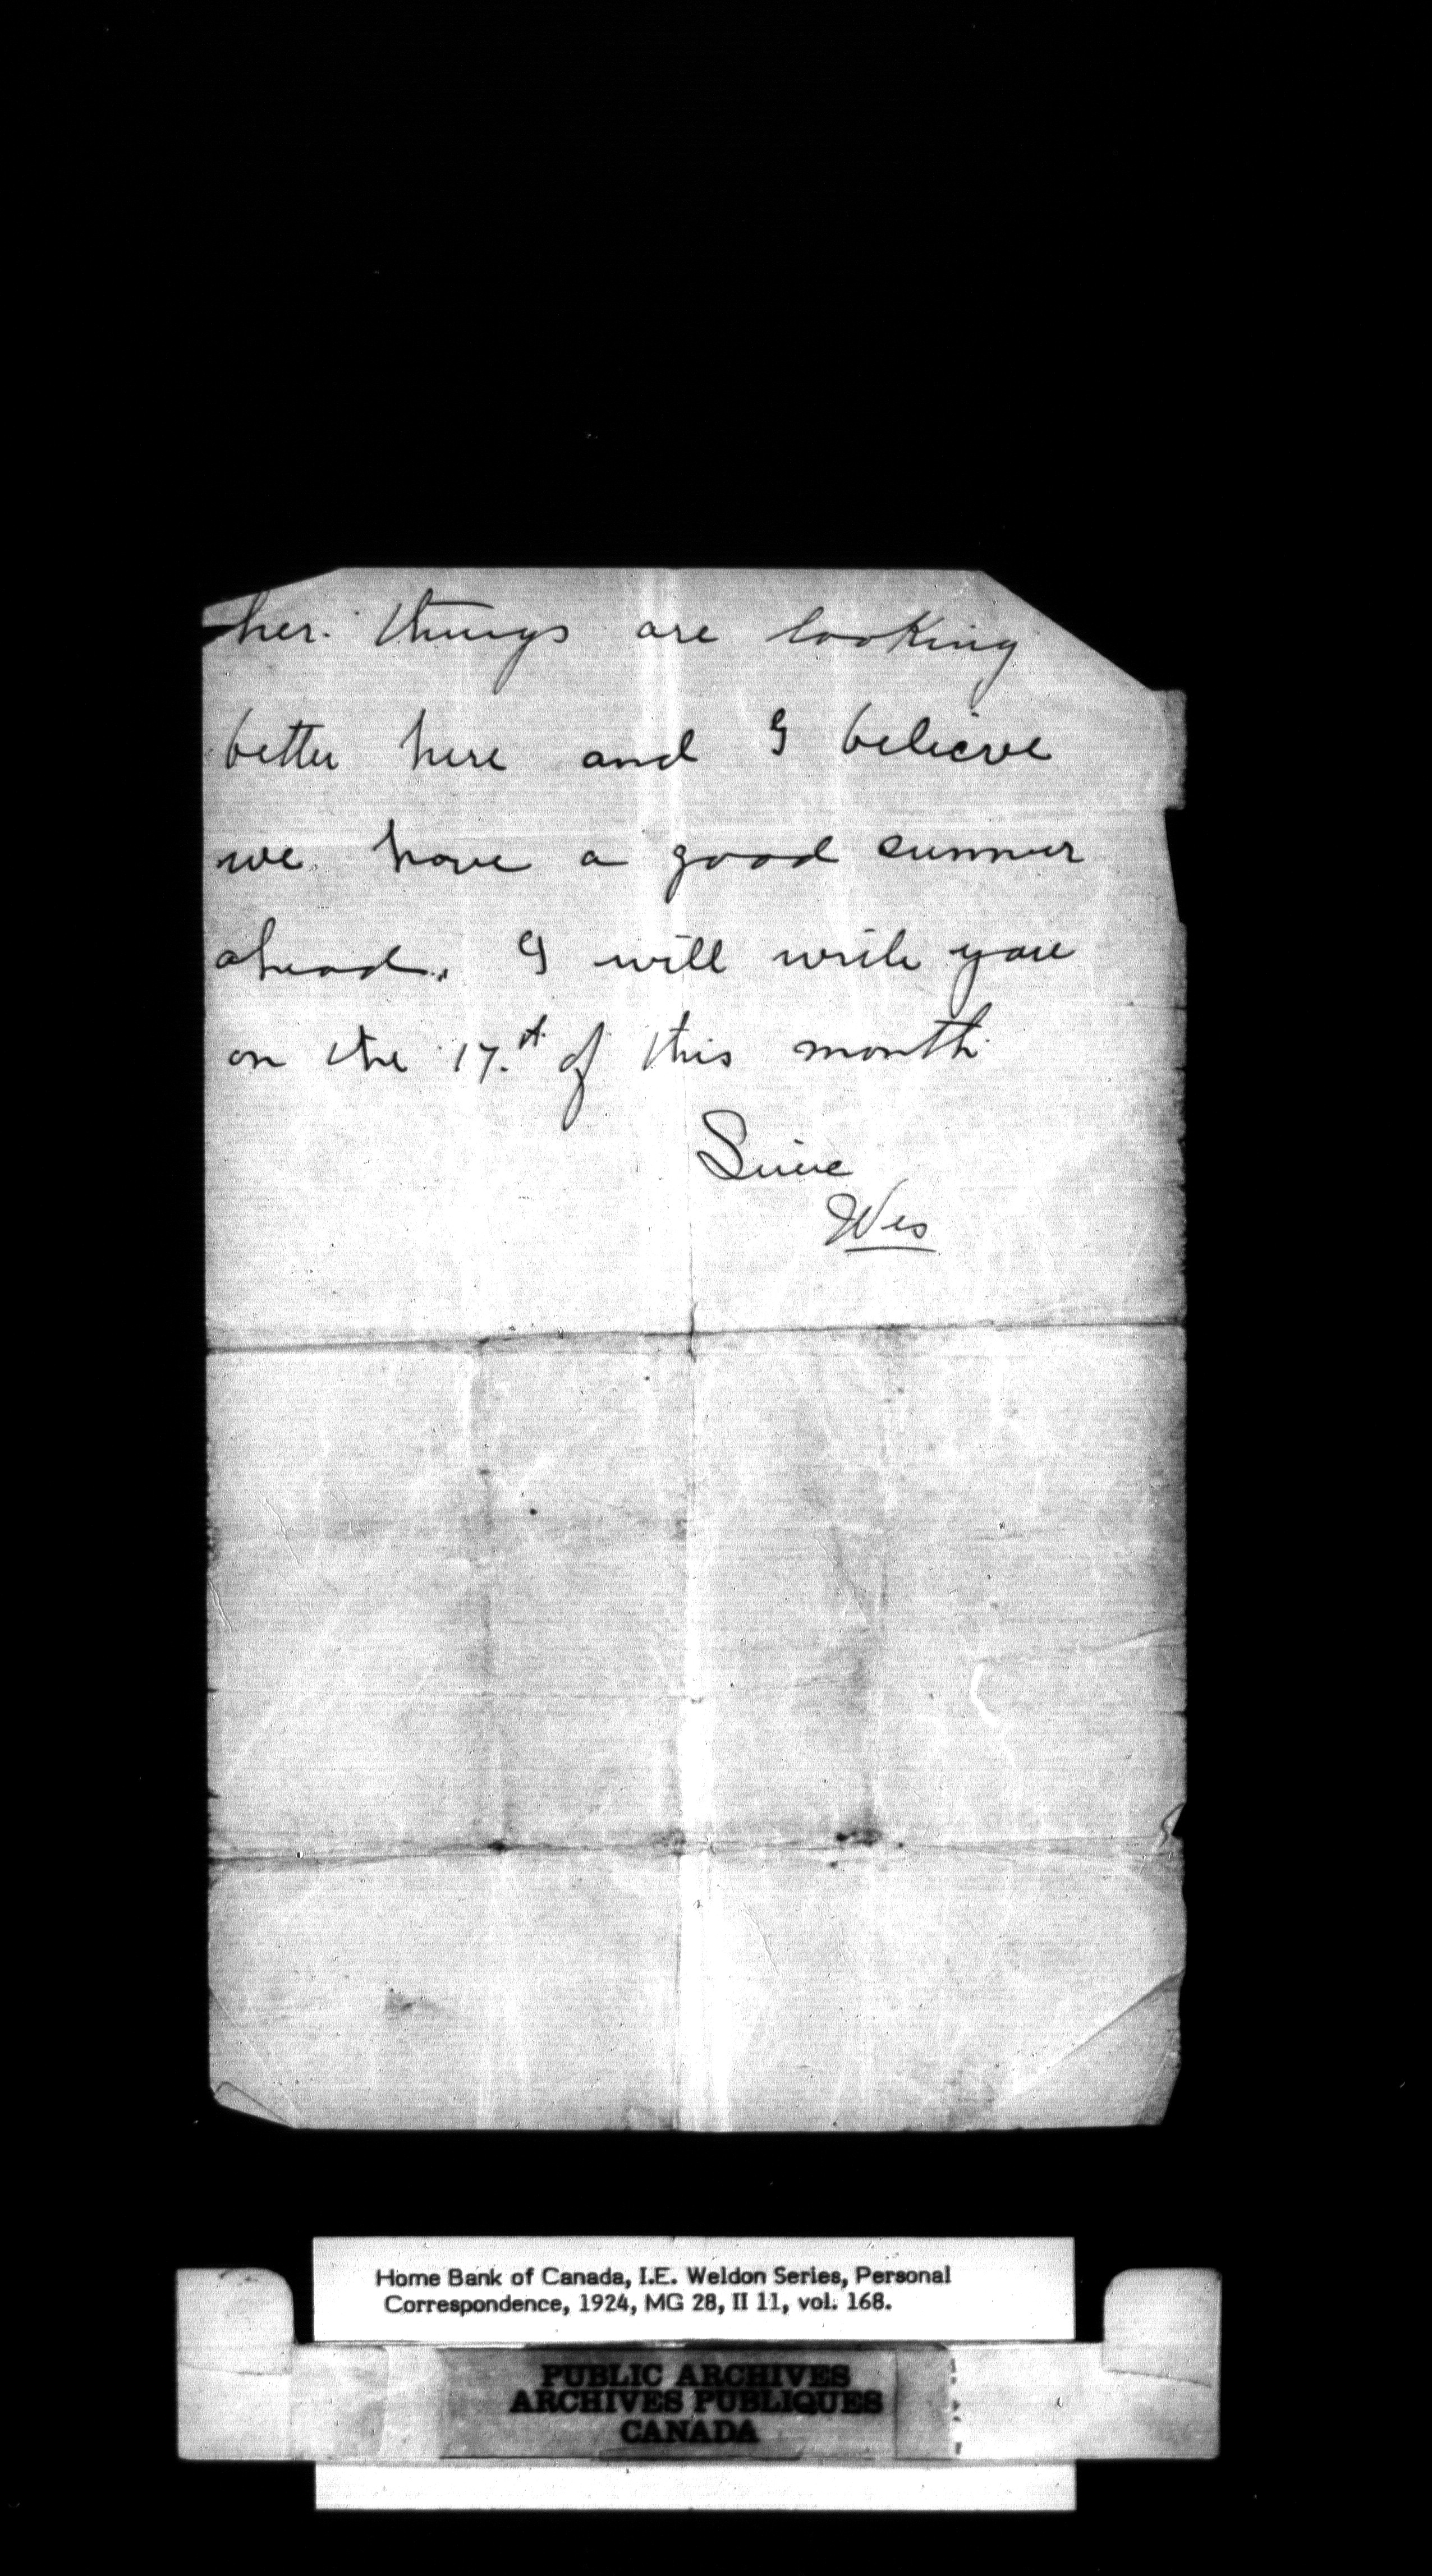 her. things are looking
better here and I believe
we have a good summer
ahead. I will write you
on the 17.th of this month
Wes
Home Bank of Canada, I.E. Weldon Series, Personal
Correspondence, 1924, MG 28, II 11, vol. 168.
PUBLIC ARCHIVES
ARCHIVES PUBLIQUES
CANADA